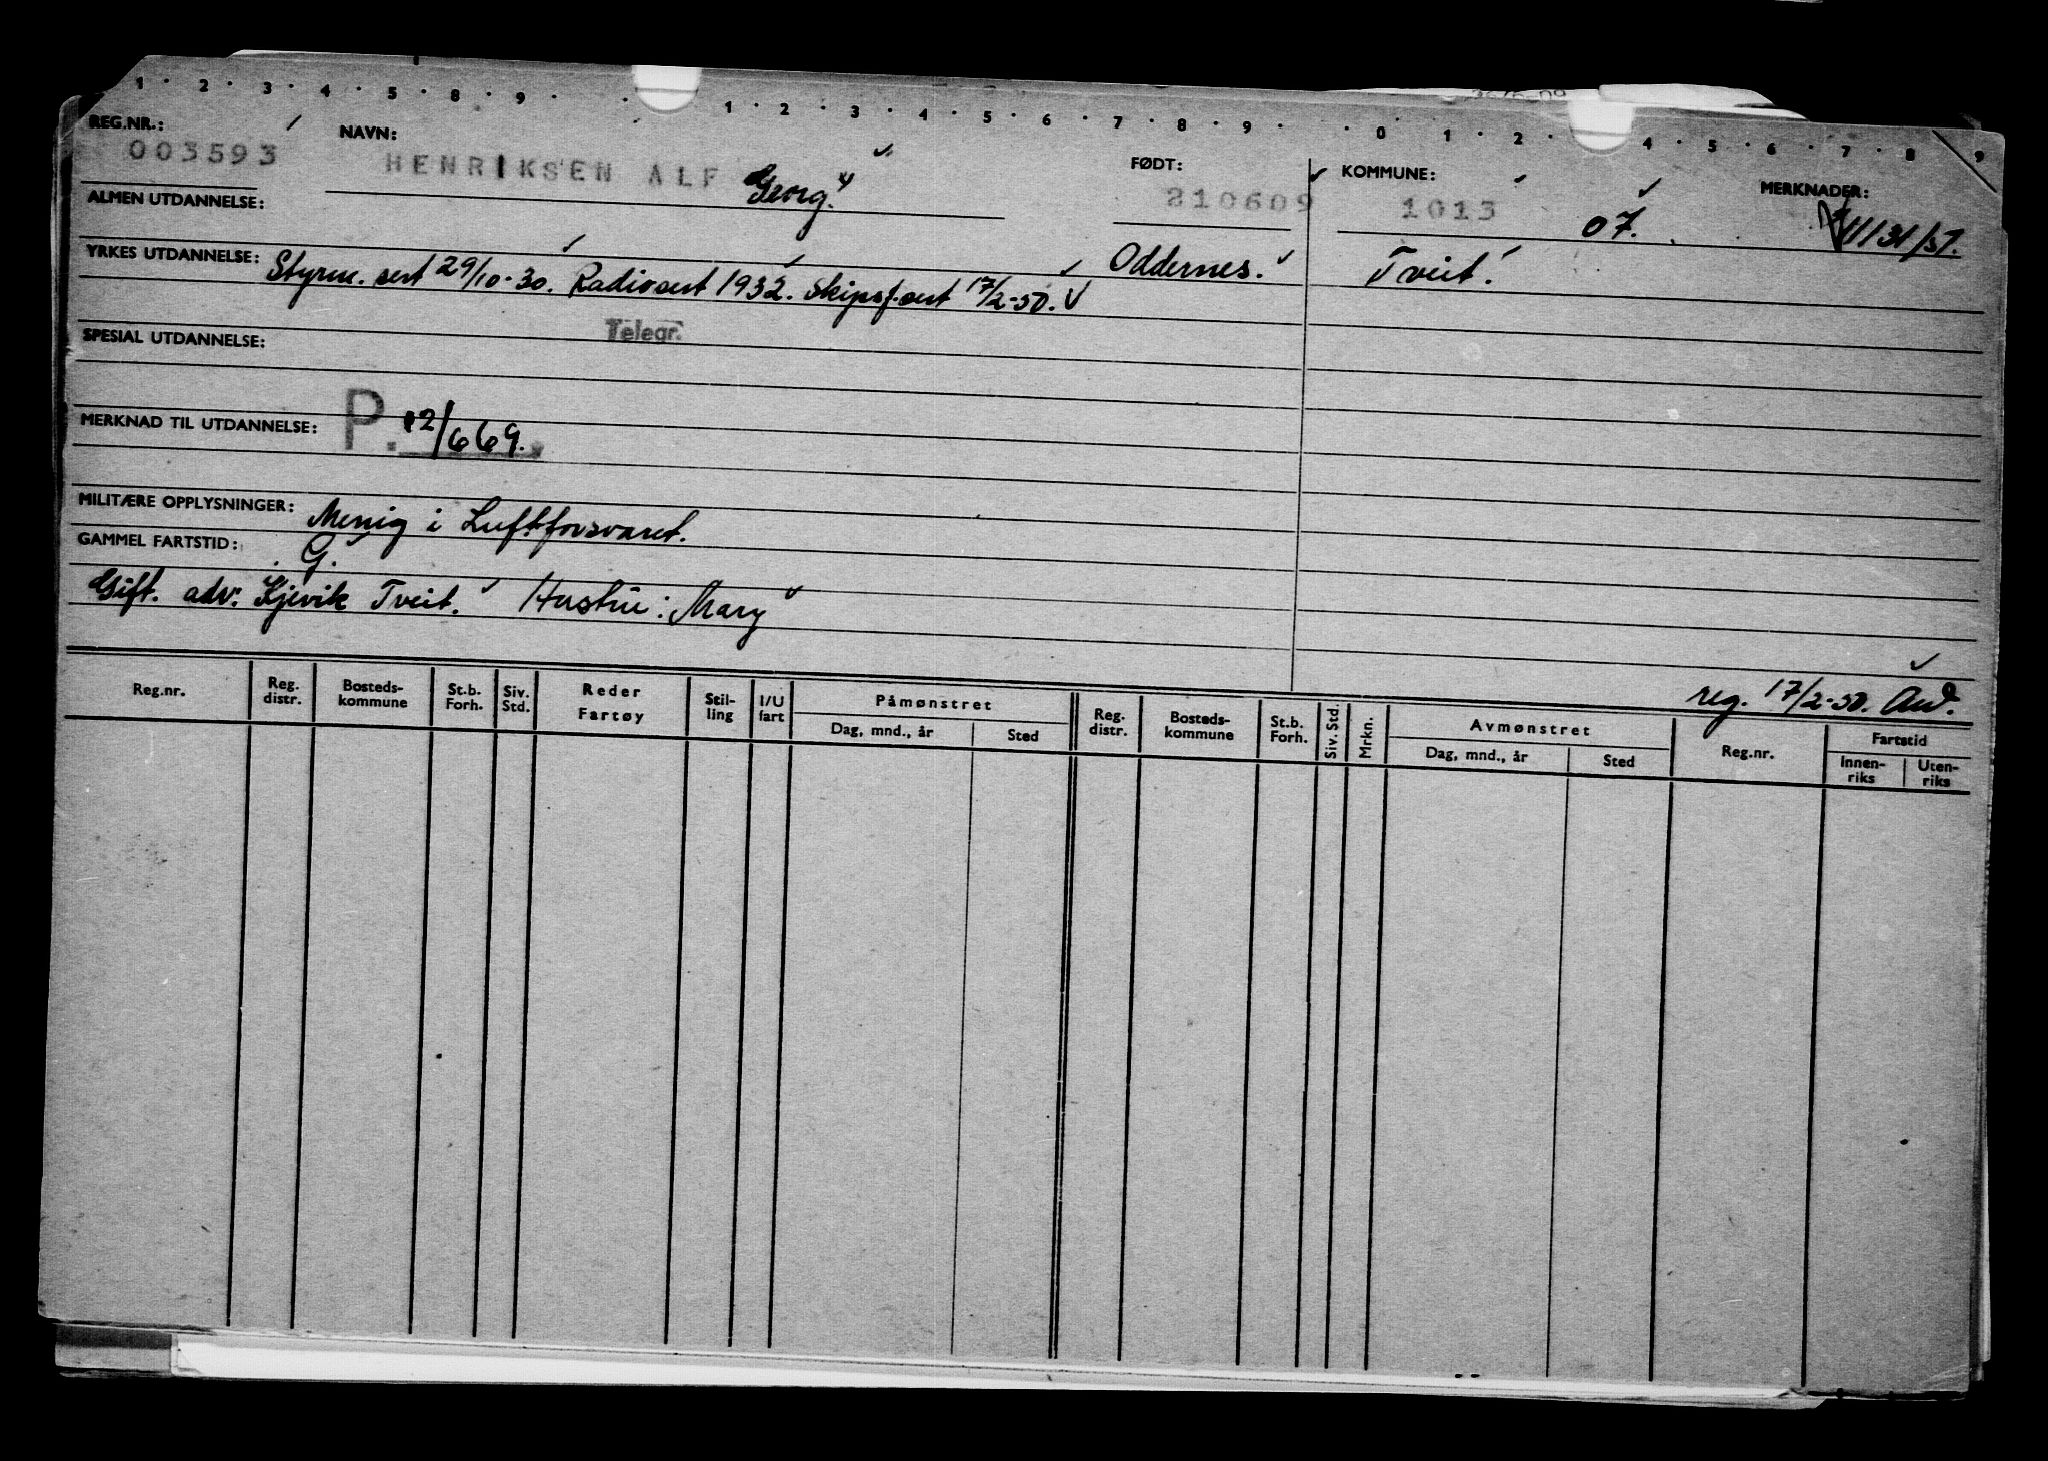 1 · 2 · 3 · 4 · 5 · 8 · 9 · · 1 · 2 · 3 · 4 · 5 · 6 · 7 · 8 · 9 · · 0 · 1 · 2 · 4 · 5 · 6 · 7 · 8 · 9
REG.NR.: NAVN: FØDT: KOMMUNE: MERKNADER:
003593 HENRIKSEN ALF Georg. 210609 1013 07.
ALMEN UTDANNELSE:
YRKES UTDANNELSE: Styrm. sert 29/10-30. Radiosert 1932. Skipsf.sert 17/2-50. Oddernes. Tveit.
Telegr.
SPESIAL UTDANNELSE:
MERKNAD TIL UTDANNELSE: P. 12/669.
MILITÆRE OPPLYSNINGER: Menig i Luftforsvaret.
GAMMEL FARTSTID: G.
Gift. adr. Kjevik Tveit. Hustru: Mary
reg. 17/2-50.
Reg.nr. Reg. distr. Bosteds-kommune St.b. Forh. Siv. Std. Reder Fartøy Stil-ling I/U fart Påmønstret Reg. distr. Bosteds-kommune St.b. Forh. Siv. Std. Mrkn. Avmønstret Reg.nr. Fartstid
Dag, mnd., år Sted Dag, mnd., år Sted Innen-riks Uten-riks